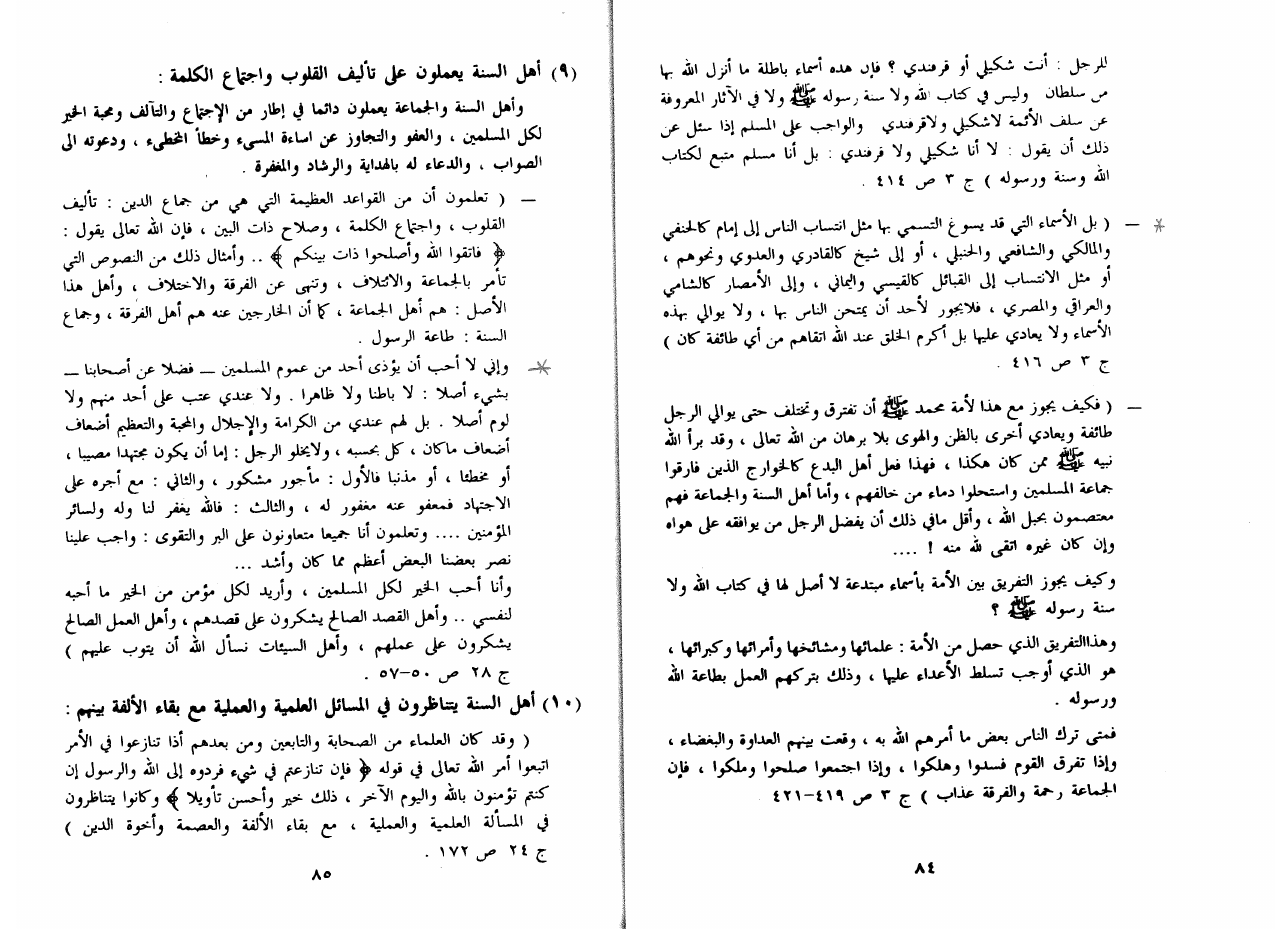 للرجل : أنت شكيلي أو قرفندي ؟ فإن هذه أسماء باطلة ما أنزل الله بها
من سلطان وليس في كتاب الله ولا سنة رسوله ﷺ ولا في الآثار المعروفة
عن سلف الأئمة لاشكيلي ولاقرفندي والواجب على المسلم إذا سئل عن
ذلك أن يقول : لا أنا شكيلي ولا قرفندي : بل أنا مسلم متبع لكتاب
الله وسنة ورسوله ) ج ٣ ص ٤١٤ .
— ( بل الأسماء التي قد يسوغ التسمي بها مثل انتساب الناس إلى إمام كالحنفي
والمالكي والشافعي والحنبلي ، أو إلى شيخ كالقادري والعدوي ونحوهم ،
أو مثل الانتساب إلى القبائل كالقيسي واليماني ، وإلى الأمصار كالشامي
والعراقي والمصري ، فلايجوز لأحد أن يمتحن الناس بها ، ولا يوالي بهذه
الأسماء ولا يعادي عليها بل أكرم الخلق عند الله اتقاهم من أي طائفة كان )
ج ٣ ص ٤١٦ .
— ( فكيف يجوز مع هذا لأمة محمد ﷺ أن تفترق وتختلف حتى يوالي الرجل
طائفة ويعادي أخرى بالظن والهوى بلا برهان من الله تعالى ، وقد برأ الله
نبيه ﷺ ممن كان هكذا ، فهذا فعل أهل البدع كالخوارج الذين فارقوا
جماعة المسلمين واستحلوا دماء من خالفهم ، وأما أهل السنة والجماعة فهم
معتصمون بحبل الله ، وأقل مافي ذلك أن يفضل الرجل من يوافقه على هواه
وإن كان غيره اتقى لله منه ! ....
وكيف يجوز التفريق بين الأمة بأسماء مبتدعة لا أصل لها في كتاب الله ولا
سنة رسوله ﷺ ؟
وهذاالتفريق الذي حصل من الأمة : علمائها ومشائخها وأمرائها وكبرائها ،
هو الذي أوجب تسلط الأعداء عليها ، وذلك بتركهم العمل بطاعة الله
ورسوله .
فمتى ترك الناس بعض ما أمرهم الله به ، وقعت بينهم العداوة والبغضاء ،
وإذا تفرق القوم فسدوا وهلكوا ، وإذا اجتمعوا صلحوا وملكوا ، فإن
الجماعة رحمة والفرقة عذاب ) ج ٣ ص ٤١٩–٤٢١
٨٤
(٩) أهل السنة يعملون على تأليف القلوب واجتماع الكلمة :
وأهل السنة والجماعة يعملون دائما في إطار من الإجتماع والتآلف ومحبة الخير
لكل المسلمين ، والعفو والتجاوز عن اساءة المسيء وخطأ المخطىء ، ودعوته الى
الصواب ، والدعاء له بالهداية والرشاد والمغفرة .
— ( تعلمون أن من القواعد العظيمة التي هي من جماع الدين : تأليف
القلوب ، واجتماع الكلمة ، وصلاح ذات البين ، فإن الله تعالى يقول :
﴿ فاتقوا الله وأصلحوا ذات بينكم ﴾ .. وأمثال ذلك من النصوص التي
تأمر بالجماعة والائتلاف ، وتنهى عن الفرقة والاختلاف ، وأهل هذا
الأصل : هم أهل الجماعة ، كما أن الخارجين عنه هم أهل الفرقة ، وجماع
السنة : طاعة الرسول .
وإني لا أحب أن يؤذى أحد من عموم المسلمين — فضلا عن أصحابنا —
بشيء أصلا : لا باطنا ولا ظاهرا . ولا عندي عتب على أحد منهم ولا
لوم أصلا . بل لهم عندي من الكرامة والإجلال والمحبة والتعظيم أضعاف
أضعاف ماكان ، كل بحسبه ، ولايخلو الرجل : إما أن يكون مجتهدا مصيبا ،
أو مخطئا ، أو مذنبا فالأول : مأجور مشكور ، والثاني : مع أجره على
الاجتهاد فمعفو عنه مغفور له ، والثالث : فالله يغفر لنا وله ولسائر
المؤمنين .... وتعلمون أنا جميعا متعاونون على البر والتقوى : واجب علينا
نصر بعضنا البعض أعظم مما كان وأشد ...
وأنا أحب الخير لكل المسلمين ، وأريد لكل مؤمن من الخير ما أحبه
لنفسي .. وأهل القصد الصالح يشكرون على قصدهم ، وأهل العمل الصالح
يشكرون على عملهم ، وأهل السيئات نسأل الله أن يتوب عليهم )
ج ٢٨ ص ٥٠–٥٧ .
(١٠) أهل السنة يتناظرون في المسائل العلمية والعملية مع بقاء الألفة بينهم :
( وقد كان العلماء من الصحابة والتابعين ومن بعدهم أذا تنازعوا في الأمر
اتبعوا أمر الله تعالى في قوله ﴿ فإن تنازعتم في شيء فردوه إلى الله والرسول إن
كنتم تؤمنون بالله واليوم الآخر ، ذلك خير وأحسن تأويلا ﴾ وكانوا يتناظرون
في المسألة العلمية والعملية ، مع بقاء الألفة والعصمة وأخوة الدين )
ج ٢٤ ص ١٧٢ .
٨٥